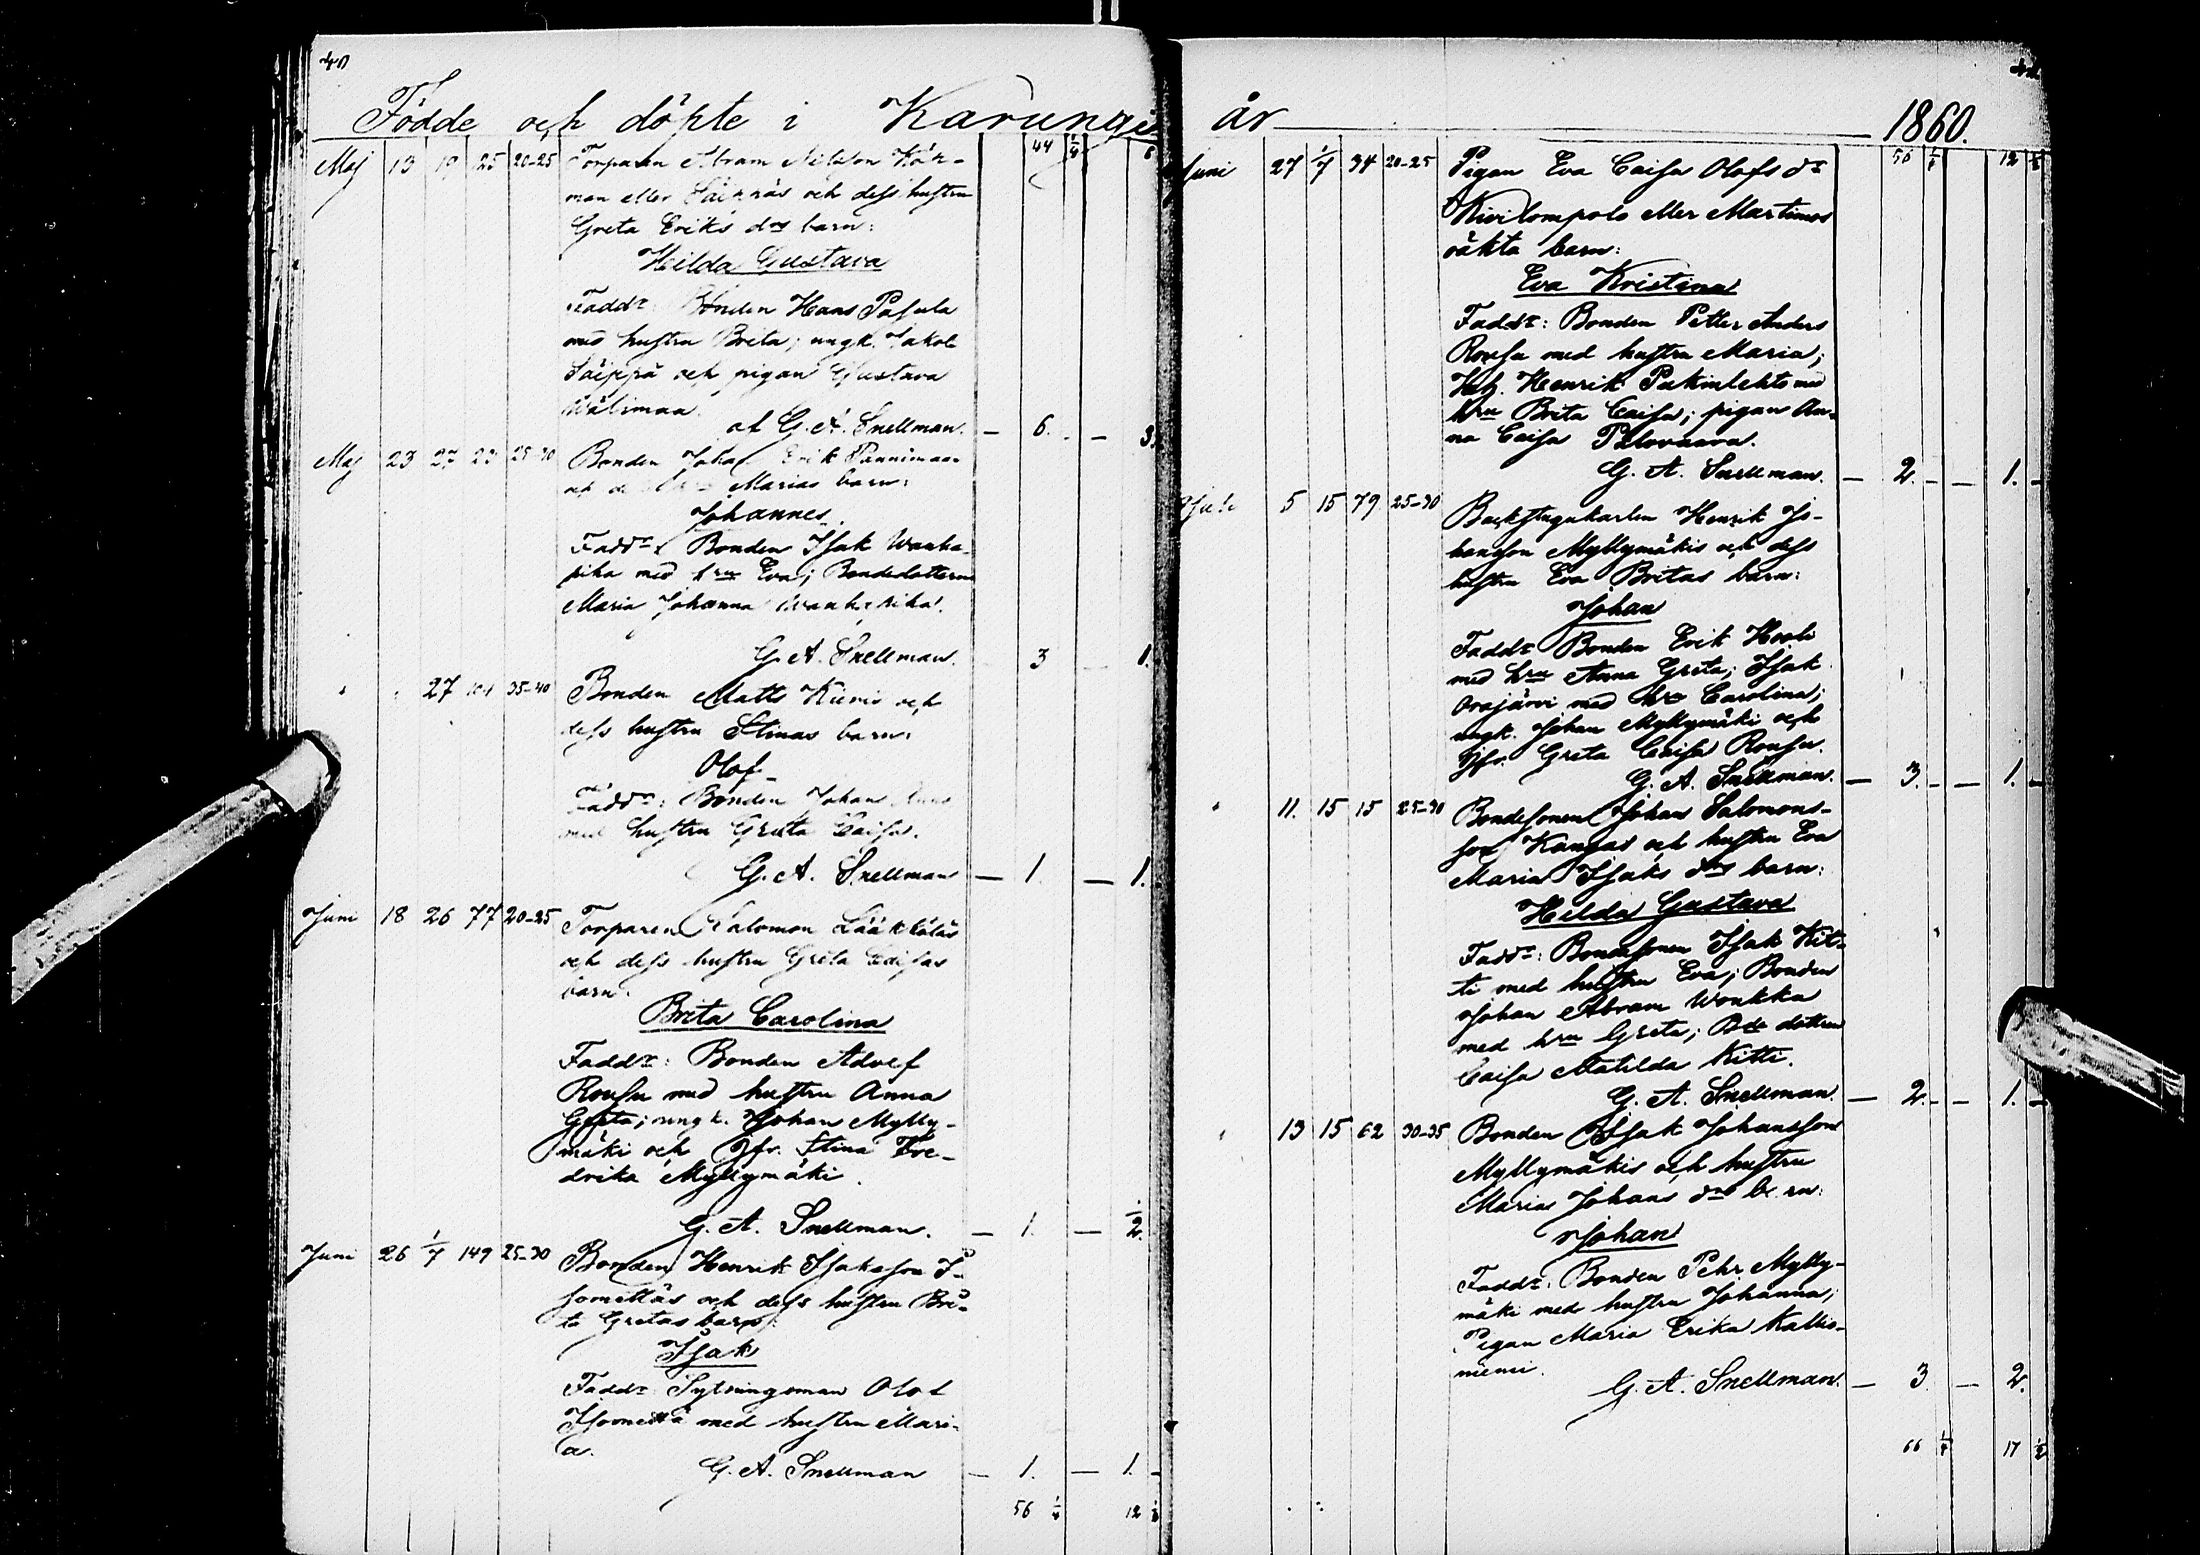 40
Födde och döpte i Karungi
44 1/4
Maj 13 19 25 20-25 Torparen Abram Nilsson Kök-
man eller Säippäs och dess hustru
Greta Eriks drs barn:
Hilda Gustava
Faddr: Bonden Hans Pasula
med hustru Brita; ungk. Jakob
Säippä och pigan Gustava
Wälimaa.
af G. A. Snellman. — 6. — 3.
Maj 23 27 23 25-30 Bonden Johan Erik Pannimaas
Marias barn:
Johannes.
Faddr: Bonden Isak Wanha-
pika med hru Eva; Bondedottern
Maria Johanna Wanhapiha.
G. A. Snellman. 3 — 1.
27 104 35-40 Bonden Matts Kieris och
dess hustru Stinas barn:
Olof
Faddr: Bonden Johan
med hustru Greta Caisa.
G. A. Snellman — 1. — 1.
Juni 18 26 77 20-25 Torparen Salomon Lääkköläs
och dess hustru Greta Caisas
barn:
Brita Carolina
Faddr: Bonden Adolf
Rousu med hustru Anna
Greta; ungk. Johan Mylly-
mäki och Jfr. Stina Fre-
drika Myllymäki.
G. A. Snellman. — 1. — 1/2
Juni 26 1/7 149 25-30 Bonden Henrik Isaksson I-
somettäs och dess hustru Bri-
ta Gretas barn:
Isak
Faddr: Sytningsman Olof
Isomettä med hustru Mari-
a.
G. A. Snellman — 1. — 1. —
56 1/4 12 1/2
år 1860.
56 1/4 12 1/2
Juni 27 1/7 34 20-25 Pigan Eva Caisa Olofs dr
Kivilompolo eller Martimos
oäkta barn:
Eva Kristina
Faddr: Bonden Petter Anders
Rousu med hustru Maria;
Henrik Pukinlehto med
hru Brita Caisa; pigan An-
na Caisa Palovaara.
G. A. Snellman. — 2. — — 1. —
Juli 5 15 79 25-30 Backstugukarlen Henrik Jo-
hansson Myllymäkis och dess
hustru Eva Britas barn:
Johan
Faddr Bonden Erik Hooli
med hru Anna Greta; Isak
Orajärvi med hru Carolina;
ungk. Johan Myllymäki och
Jfr. Greta Caisa Rousu.
G. A. Snellman. — 3. — — 1. —
11. 15 15 25-30 Bondesonen Johan Salomons-
son Kangas och hustru Eva
Maria Isaks drs barn:
Hilda Gustava
Faddr: Bondesonen Isak Kit-
ti med hustru Eva; Bonden
Johan Abram Wonkka
med hru Greta; Bde dottren
Caisa Matilda Kitti.
G. A. Snellman. — 2. — — 1. —
13 15 62 30-35 Bonden Isak Johansson
Myllymäkis och hustru
Maria Johans drs barn:
Johan
Faddr: Bonden Pehr Mylly-
mäki med hustru Johanna;
Pigan Maria Erika Kallio-
niemi.
G. A. Snellman. — 3. — 2.
66 1/4 17 1/2